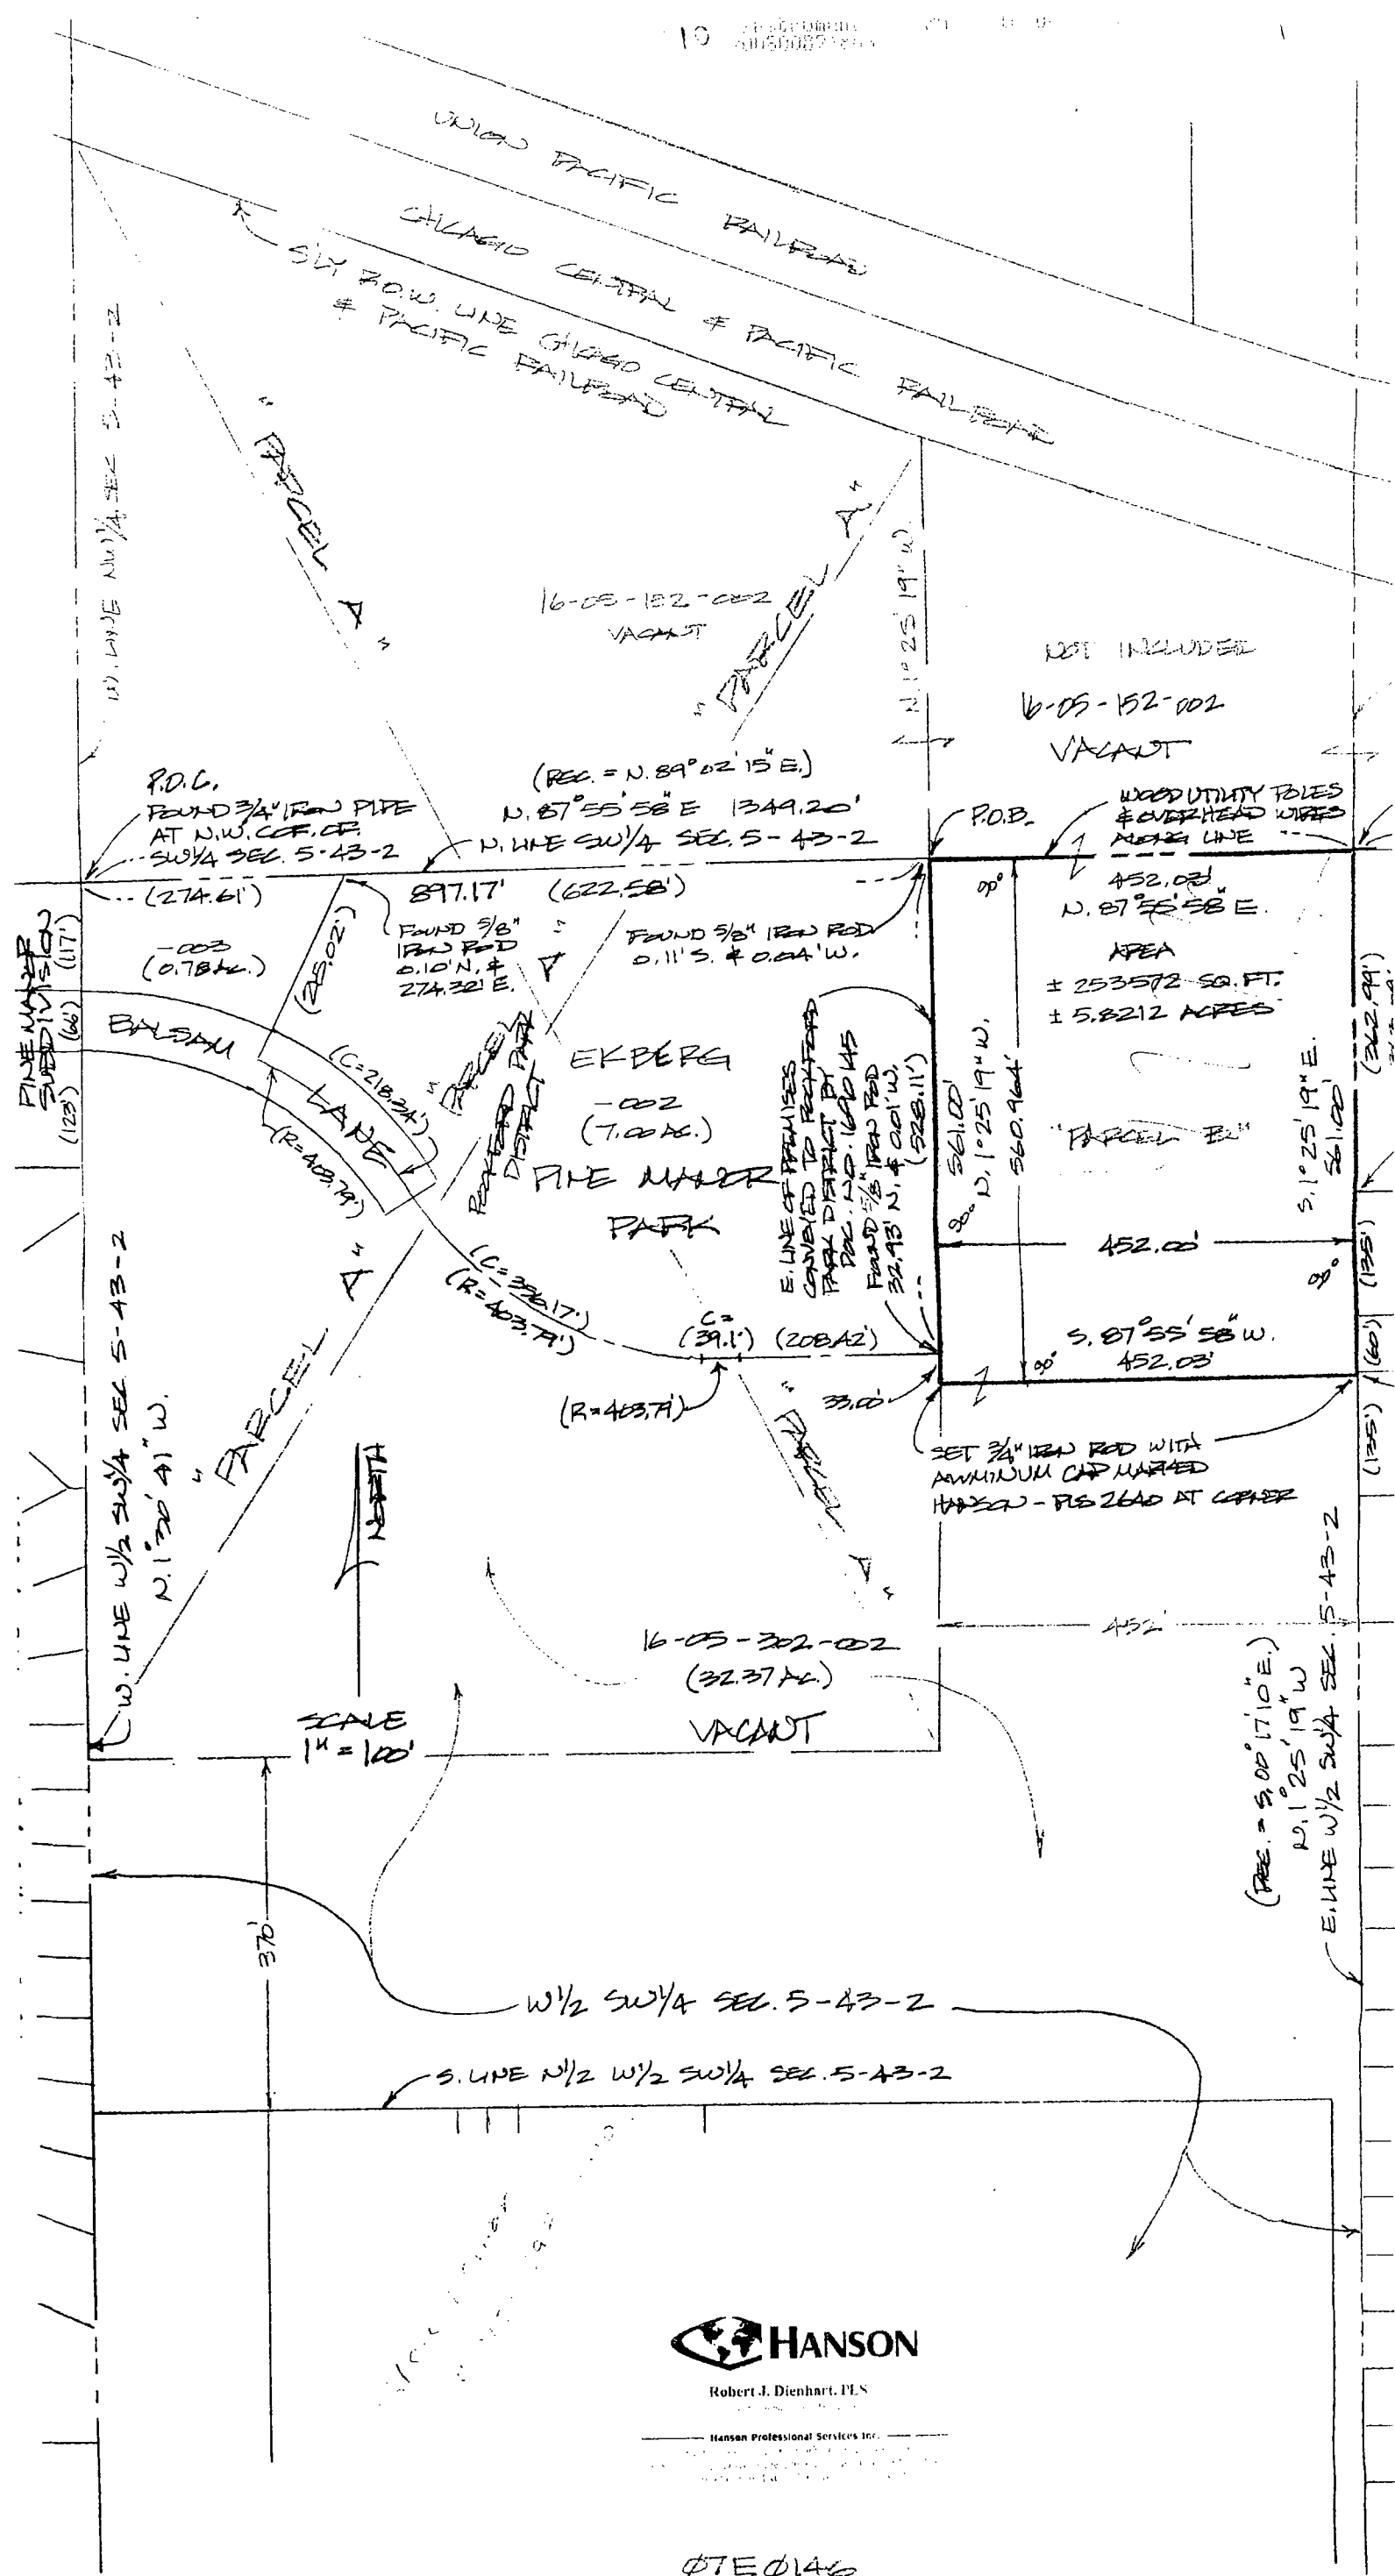 10
UNION PACIFIC RAILROAD
CHICAGO CENTRAL & PACIFIC RAILROAD
S'LY R.O.W. LINE CHICAGO CENTRAL
& PACIFIC RAILROAD
W. LINE NW1/4 SEC 5-43-2
"PARCEL A"
16-05-152-002
VACANT
"PARCEL A"
N. 1° 25' 19" W.
NOT INCLUDED
16-05-152-002
VACANT
P.O.C.
FOUND 3/4" IRON PIPE
AT N.W. COR. OF
SW1/4 SEC. 5-43-2
(REC. = N. 89° 02' 15" E.)
N. 87° 55' 58" E 1349.20'
N. LINE SW1/4 SEC. 5-43-2
P.O.B.
WOOD UTILITY POLES
& OVERHEAD WIRES
ALONG LINE
(274.61')
897.17' (622.58')
-003
(0.78 AC.)
FOUND 5/8"
IRON ROD
0.10' N. &
274.32' E.
FOUND 5/8" IRON ROD
0.11' S. & 0.04' W.
90°
452.03'
N. 87° 55' 58" E.
AREA
± 253572 SQ. FT.
± 5.8212 ACRES
PINE MANOR
SUBDIVISION
(117')
(66')
(123')
BALSAM LANE
(C=218.34')
(R=403.79')
"PARCEL A"
ROCKFORD PARK
DISTRICT
EKBERG
-002
(7.00 AC.)
PINE MANOR
PARK
E. LINE OF PREMISES
CONVEYED TO ROCKFORD
PARK DISTRICT BY
DOC. NO. 1690145
FOUND 5/8" IRON ROD
32.93' N. & 0.01' W.
(528.11')
561.00'
N. 1° 25' 19" W.
560.964'
"PARCEL B"
S. 1° 25' 19" E.
561.00'
(362.99')
90°
452.00'
90°
(135')
(C=396.17')
(R=403.79')
C=
(39.1') (208.42')
S. 87° 55' 58" W.
452.03'
90°
(60')
(R=403.79')
33.00'
(135')
SET 3/4" IRON ROD WITH
ALUMINUM CAP MARKED
HANSON - PLS 2640 AT CORNER
"PARCEL A"
"PARCEL A"
W. LINE W1/2 SW1/4 SEC 5-43-2
N. 1° 30' 41" W.
NORTH
SCALE
1" = 100'
16-05-302-002
(32.37 AC.)
VACANT
452'
(REC. = S. 00° 17' 10" E.)
N. 1° 25' 19" W
E. LINE W1/2 SW1/4 SEC. 5-43-2
370'
W1/2 SW1/4 SEC. 5-43-2
S. LINE N1/2 W1/2 SW1/4 SEC. 5-43-2
HANSON
Robert J. Dienhart, PLS
Hanson Professional Services Inc.
07E0146